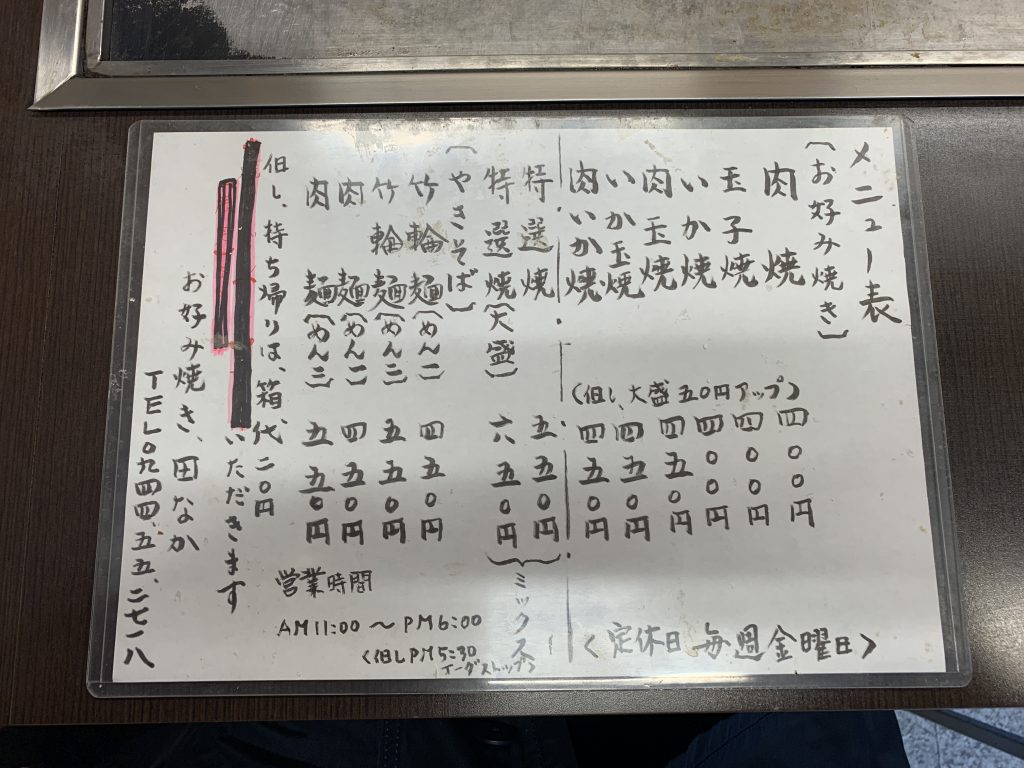 メニュー表
〔お好み焼き〕
肉焼 四〇〇円
玉子焼 四〇〇円
いか焼 四〇〇円
肉玉焼 四五〇円
いか玉焼 四五〇円
肉いか焼 四五〇円
(但し、大盛五〇円アップ)
特選焼 五五〇円
特選焼(大盛) 六五〇円
ミックス
〔やきそば〕
竹輪麺(めん一) 四五〇円
竹輪麺(めん二) 五五〇円
肉麺(めん一) 四五〇円
肉麺(めん二) 五五〇円
但し、持ち帰りは、箱代二〇円
いただきます
お好み焼き、田なか
TEL〇九四四、五五、二七一八
営業時間
AM11:00 〜 PM6:00
<但しPM5:30
オーダストップ>
<定休日 毎週金曜日>